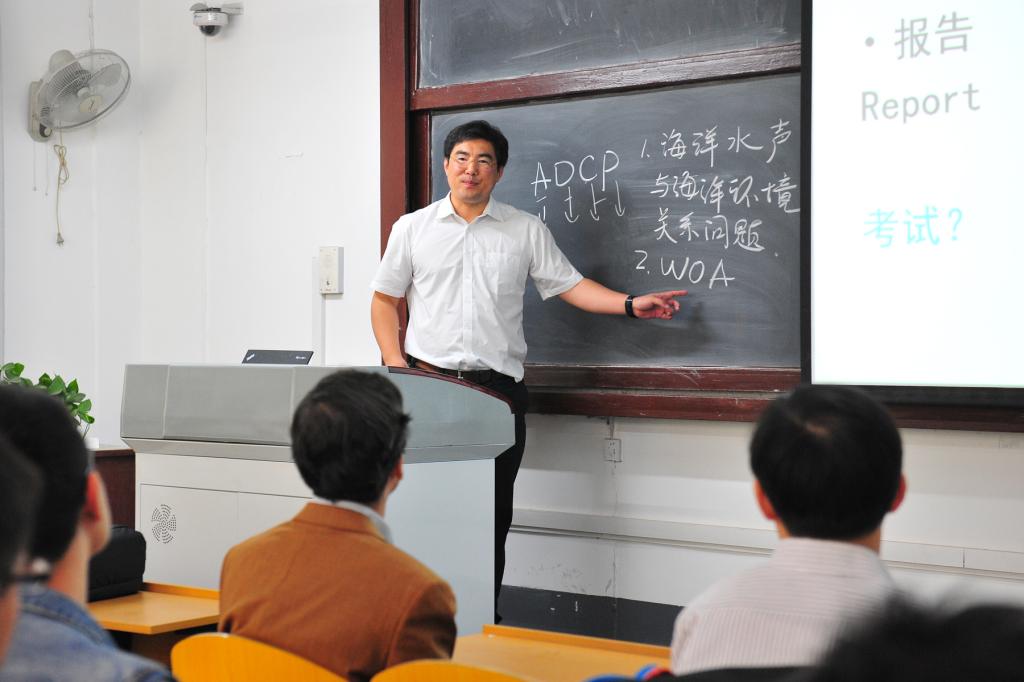 ADCP
1. 海洋水声
与海洋环境
关系问题.
2. WOA
• 报告
Report
考试?